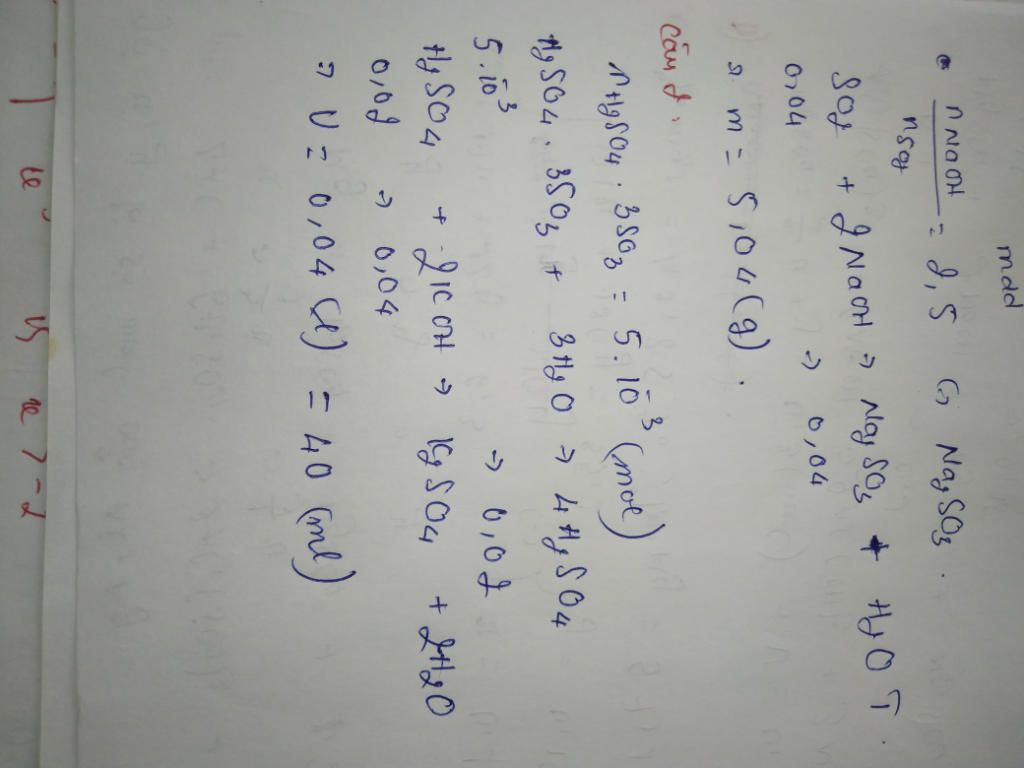 mdd
• nNaOH / nSO2 = 2,5 G Na2SO3.
SO2 + 2NaOH → Na2SO3 + H2O
0,04 → 0,04
m = 5,04 (g).
Câu 2.
nH2SO4.3SO3 = 5.10⁻³ (mol)
H2SO4.3SO3 + 3H2O → 4H2SO4
5.10⁻³ → 0,02
H2SO4 + 2KOH → K2SO4 + 2H2O
0,02 → 0,04
⇒ V = 0,04 (l) = 40 (ml)